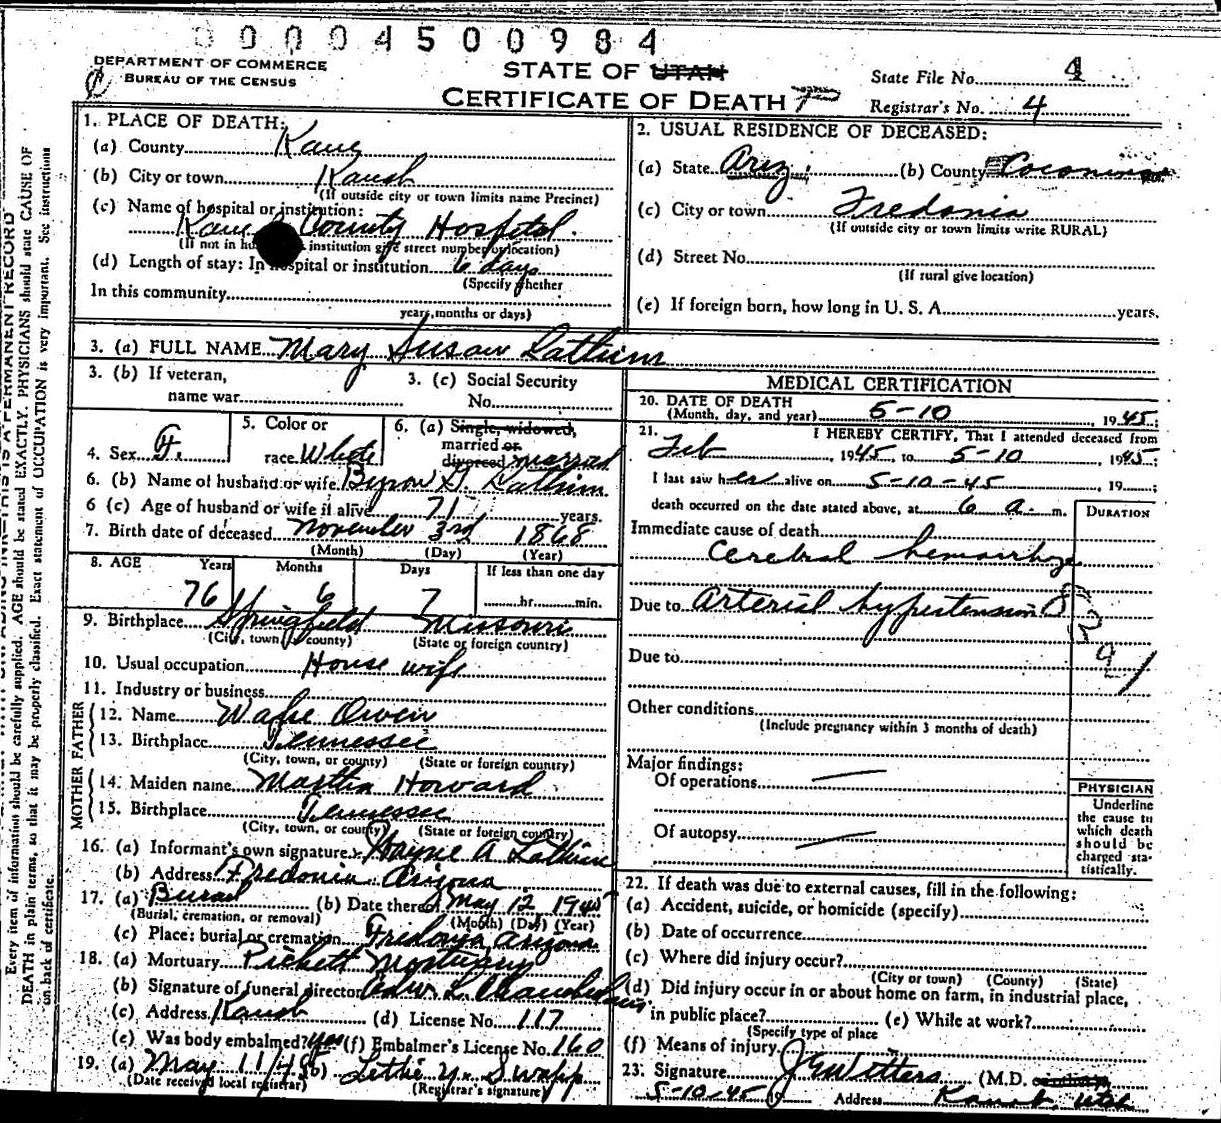 00004500984
DEPARTMENT OF COMMERCE
BUREAU OF THE CENSUS
STATE OF UTAH
CERTIFICATE OF DEATH
State File No. 4
Registrar's No. 4
1. PLACE OF DEATH:
(a) County Kane
(b) City or town Kanab
(If outside city or town limits name Precinct)
(c) Name of hospital or institution:
Kane County Hospital
(If not in institution give street number or location)
(d) Length of stay: In hospital or institution 6 days
(Specify whether
In this community
years, months or days)
2. USUAL RESIDENCE OF DECEASED:
(a) State Ariz. (b) County Coconino
(c) City or town Fredonia
(If outside city or town limits write RURAL)
(d) Street No.
(If rural give location)
(e) If foreign born, how long in U. S. A. years.
3. (a) FULL NAME Mary Susan Lathim
3. (b) If veteran,
name war
3. (c) Social Security
No.
4. Sex F.
5. Color or
race White
6. (a) Single, widowed,
married or
divorced married
6. (b) Name of husband or wife Byron G. Lathim
6 (c) Age of husband or wife if alive 71 years.
7. Birth date of deceased November 3rd 1868
(Month) (Day) (Year)
8. AGE Years Months Days If less than one day
76 6 7 hr. min.
9. Birthplace Springfield Missouri
(City, town, or county) (State or foreign country)
10. Usual occupation House wife
11. Industry or business
FATHER
12. Name Owen
13. Birthplace Tennessee
(City, town, or county) (State or foreign country)
MOTHER
14. Maiden name Martha Howard
15. Birthplace Tennessee
(City, town, or county) (State or foreign country)
16. (a) Informant's own signature Wayne A Lathim
(b) Address Fredonia Arizona
17. (a) Burial (b) Date thereof May 12 1945
(Burial, cremation, or removal) (Month) (Day) (Year)
(c) Place: burial or cremation Fredonia, Arizona.
18. (a) Mortuary Pickett Mortuary
(b) Signature of funeral director L.
(c) Address Kanab (d) License No. 117
(e) Was body embalmed? yes (f) Embalmer's License No. 160
19. (a) May 11/45 (b) Lettie Y. Swapp
(Date received local registrar) (Registrar's signature)
MEDICAL CERTIFICATION
20. DATE OF DEATH
(Month, day, and year) 5-10 1945
21. I HEREBY CERTIFY, That I attended deceased from
Feb, 1945, to 5-10, 1945;
I last saw her alive on 5-10-45, 19
death occurred on the date stated above, at 6 a. m.
DURATION
Immediate cause of death
Cerebral hemorrhage
Due to Arterial hypertension
Due to
Other conditions
(Include pregnancy within 3 months of death)
Major findings:
Of operations
Of autopsy
PHYSICIAN
Underline
the cause to
which death
should be
charged sta-
tistically.
22. If death was due to external causes, fill in the following:
(a) Accident, suicide, or homicide (specify)
(b) Date of occurrence
(c) Where did injury occur?
(City or town) (County) (State)
(d) Did injury occur in or about home on farm, in industrial place,
in public place? (e) While at work?
(Specify type of place
(f) Means of injury
23. Signature (M.D.
5-10-45 19 Address Kanab, Utah
Every item of information should be carefully supplied. AGE should be stated EXACTLY. PHYSICIANS should state CAUSE OF
DEATH in plain terms, so that it may be properly classified. Exact statement of OCCUPATION is very important. See instructions
on back of certificate.